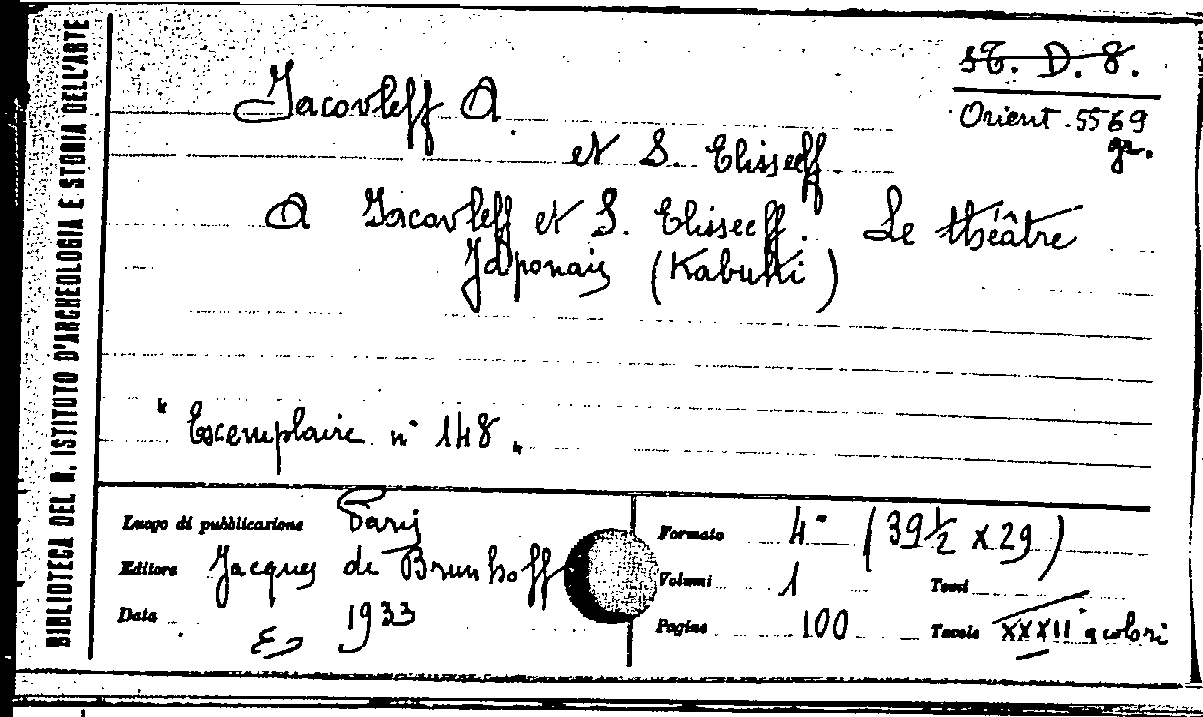 BIBLIOTECA DEL R. ISTITUTO D'ARCHEOLOGIA E STORIA DELL'ARTE
st. D. 8.
Orient. 5569
gr.
Jacovleff A.
et S. Elisseeff
A Jacovleff et S. Elisseeff. Le théâtre
Japonais (Kabuki)
"Exemplaire n° 148"
Luogo di pubblicazione Paris
Editore Jacques de Brunhoff
Data 1933
Formato 4° (39½ x 29)
Volumi 1 Tomi
Pagine 100 Tavole XXXII a colori